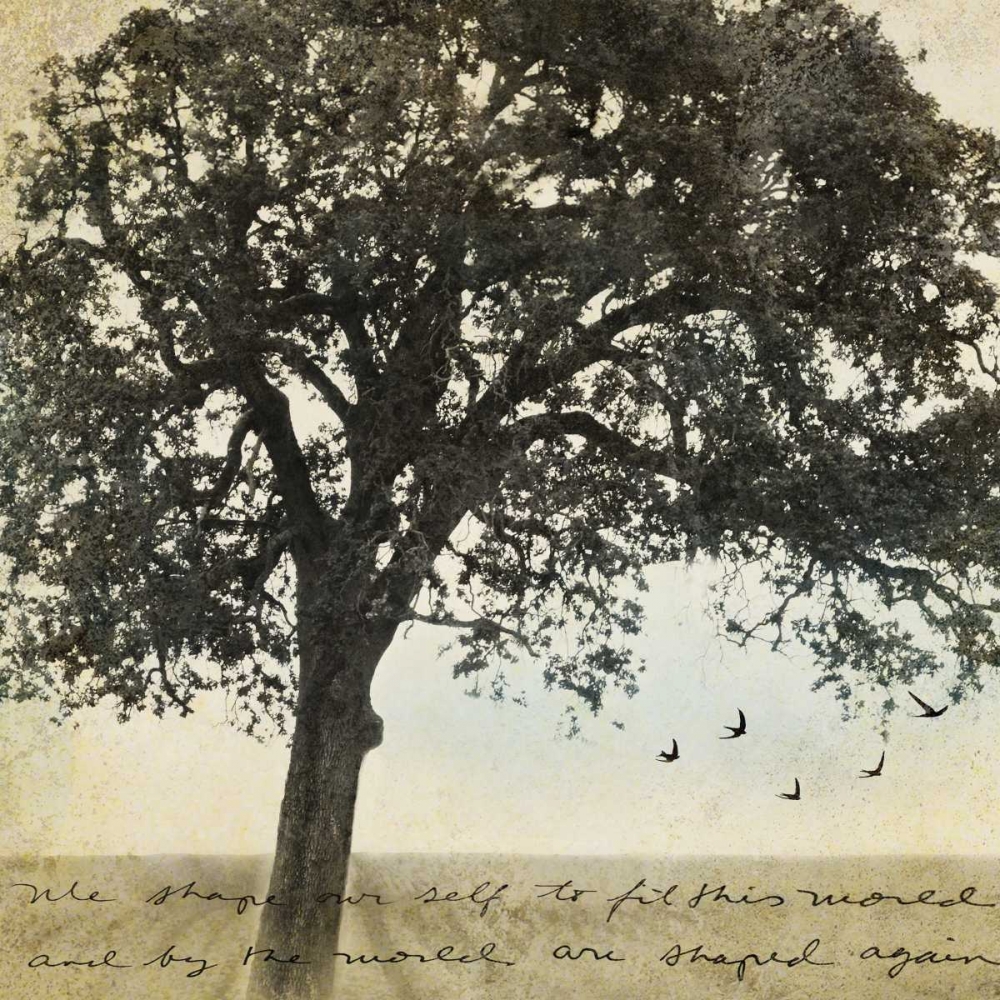 We shape our self to fit this world
and by the world are shaped again